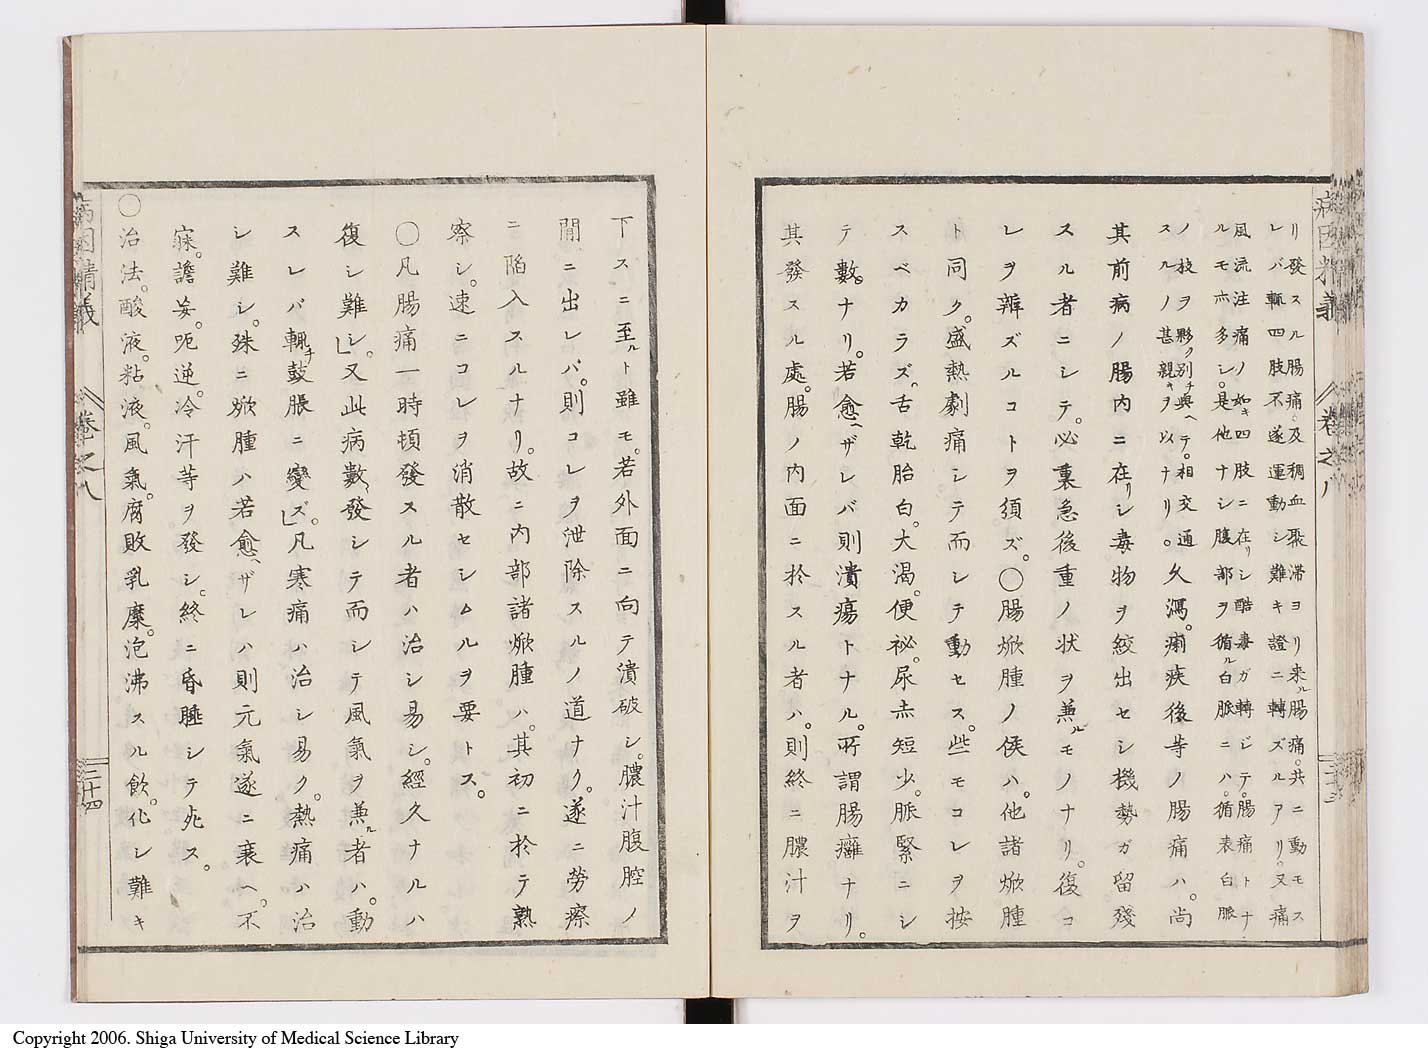 リ發スル腸痛。及稠血聚滞ヨリ来ル腸痛。共ニ動モス
レバ輒四肢不遂運動シ難キ證ニ轉ズルアリ。又痛
風流注痛ノ如キ四肢ニ在リシ酷毒ガ轉ジテ。腸痛トナ
ルモ亦多シ。是他ナシ腹部ヲ循ル白脈ニハ。循表白脈
ノ枝ヲ夥ク別チ與ヘテ。相交通
スルノ甚親キヲ以ナリ。久瀉。痢疾後等ノ腸痛ハ。尚
其前病ノ腸内ニ在リシ毒物ヲ絞出セシ機勢ガ留殘
スル者ニシテ。必裏急後重ノ状ヲ兼ルモノナリ。復コ
レヲ辨ズルコトヲ須ズ。〇腸焮腫ノ候ハ。他諸焮腫
ト同ク。盛熱劇痛シテ而シテ動セス。些モコレヲ按
スベカラズ。舌乾胎白。大渴。便祕。尿赤短少。脈緊ニシ
テ數ナリ。若愈ヘザレバ則潰瘍トナル。所謂腸癰ナリ。
其發スル處。腸ノ内面ニ於スル者ハ。則終ニ膿汁ヲ
病因精義
卷之八
下スニ至ルト雖モ。若外面ニ向テ潰破シ。膿汁腹腔ノ
間ニ出レバ。則コレヲ泄除スルノ道ナク。遂ニ勞瘵
ニ陷入スルナリ。故ニ内部諸焮腫ハ。其初ニ於テ熟
察シ。速ニコレヲ消散セシムルヲ要トス。
〇凡腸痛一時頓發スル者ハ治シ易シ。經久ナルハ
復シ難シ。又此病數發シテ而シテ風氣ヲ兼ル者ハ。動
スレバ輒チ鼓脹ニ變ズ。凡寒痛ハ治シ易ク。熱痛ハ治
シ難シ。殊ニ焮腫ハ若愈ヘザレハ則元氣遂ニ衰ヘ。不
寐。譫妄。呃逆。冷汗等ヲ發シ。終ニ昏睡シテ死ス。
〇治法。酸液。粘液。風氣。腐敗乳糜。泡沸スル飲。化シ難キ
病因精義
卷之八
二十四
Copyright 2006. Shiga University of Medical Science Library